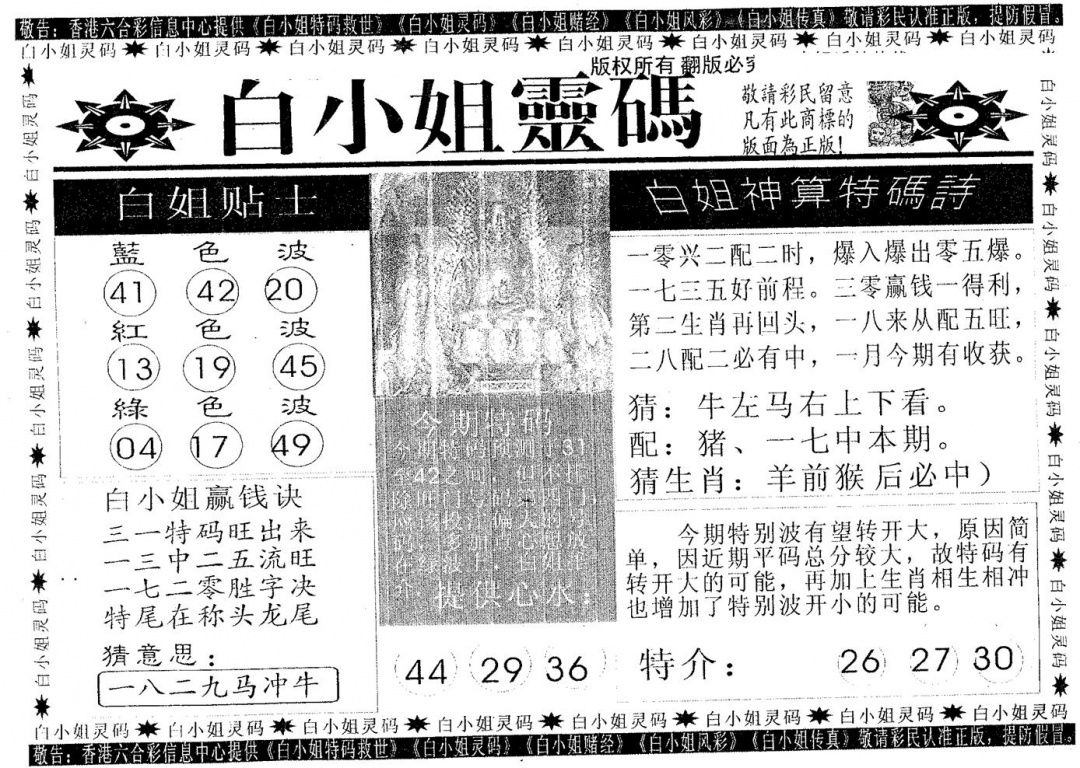 敬告：香港六合彩信息中心提供《白小姐特码救世》《白小姐灵码》《白小姐赌经》《白小姐风彩》《白小姐传真》敬请彩民认准正版，提防假冒。
白小姐灵码 白小姐灵码 白小姐灵码 白小姐灵码 白小姐灵码 白小姐灵码 白小姐灵码 白小姐灵码
版权所有 翻版必究
白小姐靈碼
敬請彩民留意
凡有此商標的
版面為正版!
白姐贴士
藍色波
41 42 20
紅色波
13 19 45
綠色波
04 17 49
白小姐赢钱诀
三一特码旺出来
一三中二五流旺
一七二零胜字决
特尾在称头龙尾
猜意思：
一八二九马冲牛
今期特码
提供心水：
44 29 36
白姐神算特碼詩
一零兴二配二时，爆入爆出零五爆。
一七三五好前程。三零赢钱一得利，
第二生肖再回头，一八来从配五旺，
二八配二必有中，一月今期有收获。
猜：牛左马右上下看。
配：猪、一七中本期。
猜生肖：羊前猴后必中）
今期特别波有望转开大，原因简
单，因近期平码总分较大，故特码有
转开大的可能，再加上生肖相生相冲
也增加了特别波开小的可能。
特介： 26 27 30
白小姐灵码 白小姐灵码 白小姐灵码 白小姐灵码 白小姐灵码
白小姐灵码 白小姐灵码 白小姐灵码 白小姐灵码 白小姐灵码
白小姐灵码 白小姐灵码 白小姐灵码 白小姐灵码 白小姐灵码 白小姐灵码 白小姐灵码 白小姐灵码
敬告：香港六合彩信息中心提供《白小姐特码救世》《白小姐灵码》《白小姐赌经》《白小姐风彩》《白小姐传真》敬请彩民认准正版，提防假冒。